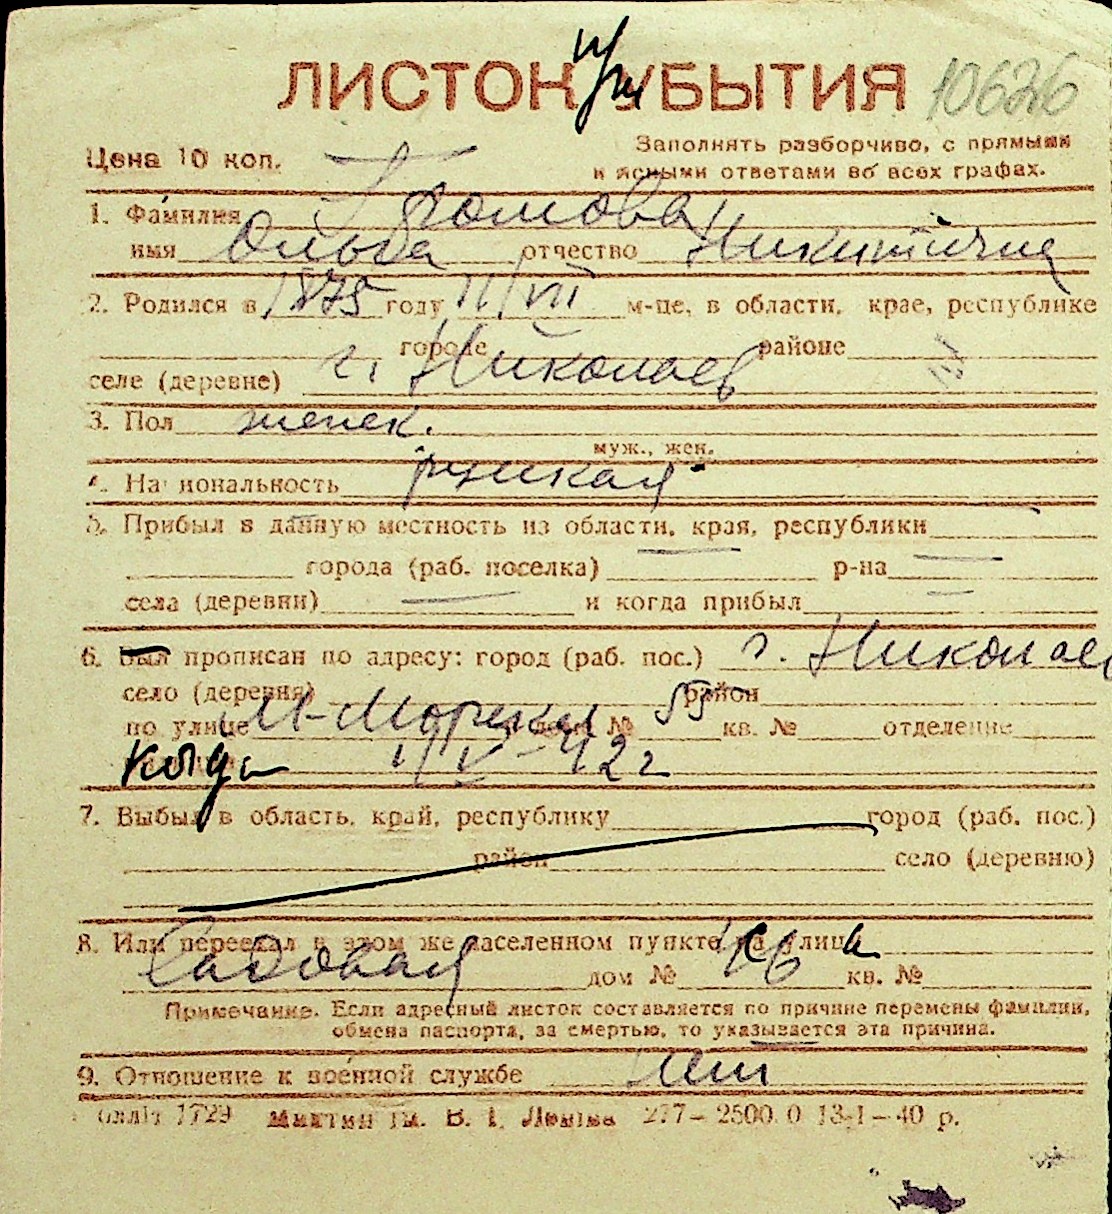 ЛИСТОК УБЫТИЯ 10626
Цена 10 коп. Заполнять разборчиво, с прямыми
и ясными ответами во всех графах.
1. Фамилия Громова
имя Ольга отчество Никитична
2. Родился в 1875 году 11/VII м-це, в области, крае, республике
городе районе
селе (деревне) г. Николаев
3. Пол женск.
муж., жен.
Национальность русская
5. Прибыл в данную местность из области, края, республики
города (раб. поселка) р-на
села (деревни) и когда прибыл
6. Был прописан по адресу: город (раб. пос.) г. Николаев
село (деревня) район
по улице М-Морская дом № 55 кв. № отделение
когда 1/V-42 г
7. Выбыл в область, край, республику город (раб. пос.)
район село (деревню)
8. Или переехал в этом же населенном пункте на улицу
Садовая дом № 46 кв. №
Примечание. Если адресный листок составляется по причине перемены фамилии,
обмена паспорта, за смертью, то указывается эта причина.
9. Отношение к военной службе нет
1729 В. І. Леніна 277–2500.0 13-1–40 р.